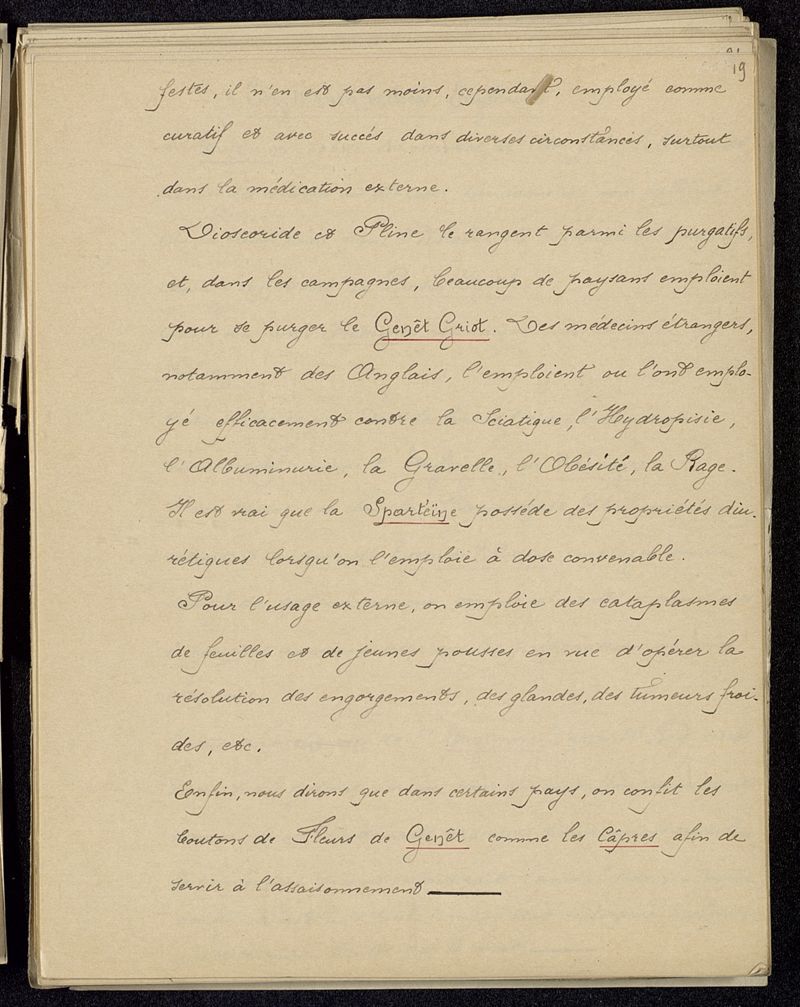 19
festes, il n'en est pas moins, cependant, employé comme
curatif et avec succés dans diverses circonstances, surtout
dans la médication externe.
Dioscoride et Pline le rangent parmi les purgatifs,
et, dans les campagnes, beaucoup de paysans emploient
pour se purger le Genêt Griot. Des médecins étrangers,
notamment des Anglais, l'emploient ou l'ont emplo-
yé efficacement contre la Sciatique, l'Hydropisie,
l'Albuminurie, la Gravelle, l'Obésité, la Rage.
Il est vrai que la Spartéïne posséde des propriétés diu-
rétiques lorsqu'on l'emploie à dose convenable.
Pour l'usage externe, on emploie des cataplasmes
de feuilles et de jeunes pousses en vue d'opérer la
résolution des engorgements, des glandes, des tumeurs froi-
des, etc.
Enfin, nous dirons que dans certains pays, on confit les
boutons de Fleurs de Genêt comme les Câpres afin de
servir à l'assaisonnement